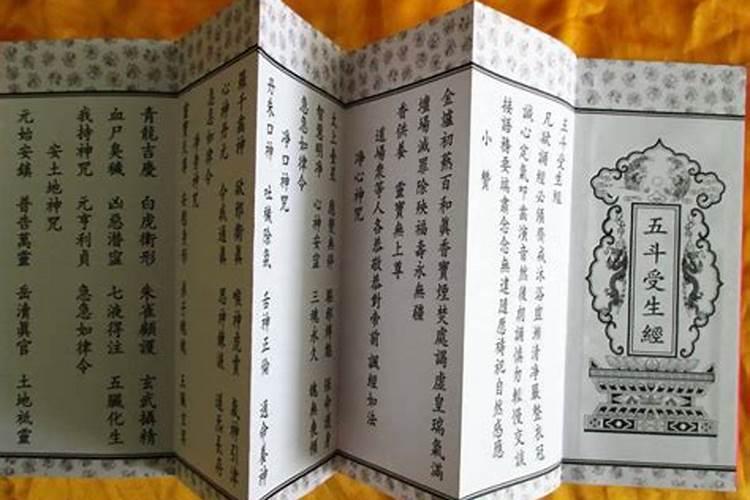 五斗受生經
五斗受生經
凡欲誦經必須齋戒沐浴盥漱清淨嚴整衣冠
誠心定氣叩齒演音然後朗誦慎勿輕慢交談
接語務要端肅念念無違隨應禱祀自然感應
小讚
金爐初爇百和真香寶煙焚處謁虛皇瑞氣滿
壇場滅罪除殃福壽永無疆
香供養 靈寶無上尊
道場衆等人各恭敬恭對帝前 誦經如法
淨心神咒
太上台星 應變無停 驅邪縛魅 保命護身
智慧明淨 心神安寧 三魂永久 魄無喪傾
急急如律令
淨口神咒
丹朱口神 吐穢除氛 舌神正倫 通命養神
羅千齒神 卻邪衛真 喉神虎賁 氣神引津
心神丹元 令我通真 思神鍊液 道炁長存
急急如律令
淨身神咒
靈寶天尊 安慰身形 弟子魂魄 五臟玄冥
青龍吉慶 白虎衛形 朱雀顧護 玄武攝精
血尸臭穢 凶惡潛寧 七液得注 五臟化生
我持神咒 元亨利貞 急急如律令
安土地神咒
元始安鎮 普告萬靈 岳瀆真官 土地祗靈